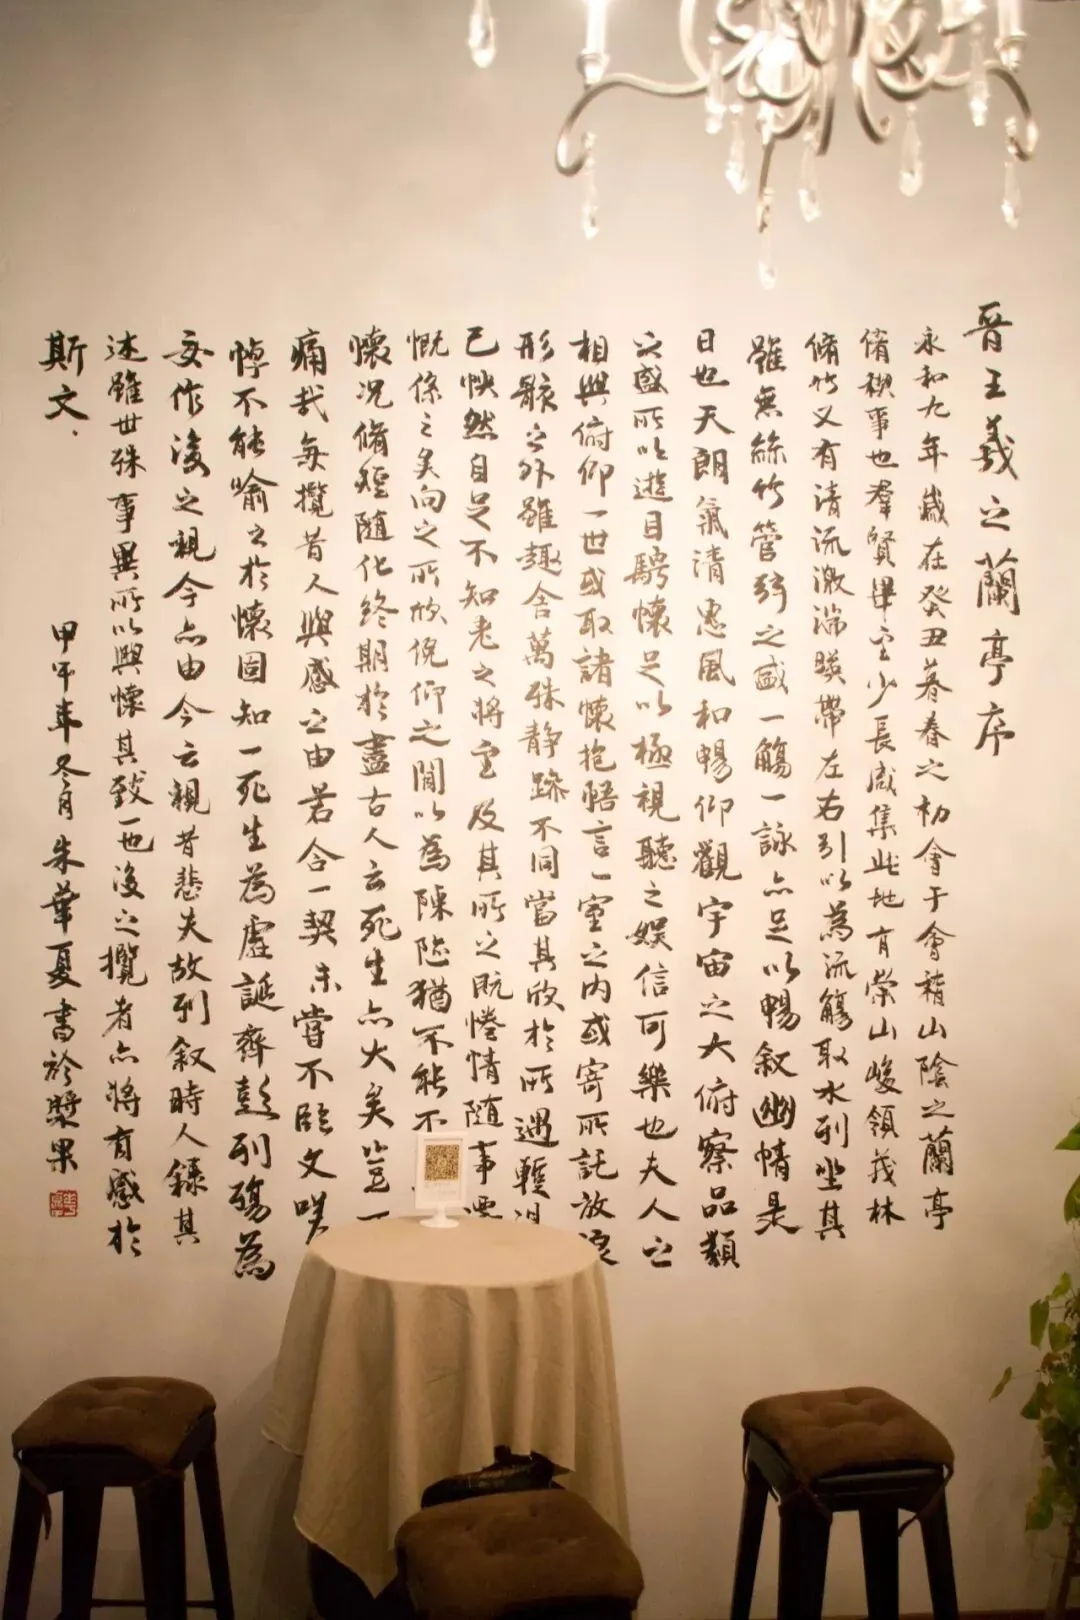 晉王羲之蘭亭序
永和九年歲在癸丑暮春之初會于會稽山陰之蘭亭
脩禊事也羣賢畢至少長咸集此地有崇山峻領茂林
脩竹又有清流激湍暎帶左右引以為流觴取水列坐其
雖無絲竹管弦之盛一觴一詠亦足以暢叙幽情是
日也天朗氣清惠風和暢仰觀宇宙之大俯察品類
之盛所以遊目騁懷足以極視聽之娱信可樂也夫人之
相與俯仰一世或取諸懷抱悟言一室之内或寄所託放浪
形骸之外雖趣舍萬殊静躁不同當其欣於所遇輕得
已怏然自足不知老之將至及其所之既惓情隨事遷
慨係之矣向之所欣俛仰之閒以為陳迹猶不能不
懷况脩短隨化終期於盡古人云死生亦大矣豈不
痛哉每攬昔人興感之由若合一契未嘗不臨文嗟
悼不能喻之於懷固知一死生為虛誕齊彭列殤為
妄作後之視今亦由今之視昔悲夫故列叙時人錄其
述雖世殊事異所以興懷其致一也後之攬者亦將有感於
斯文
甲午年冬月朱華夏書於漿果